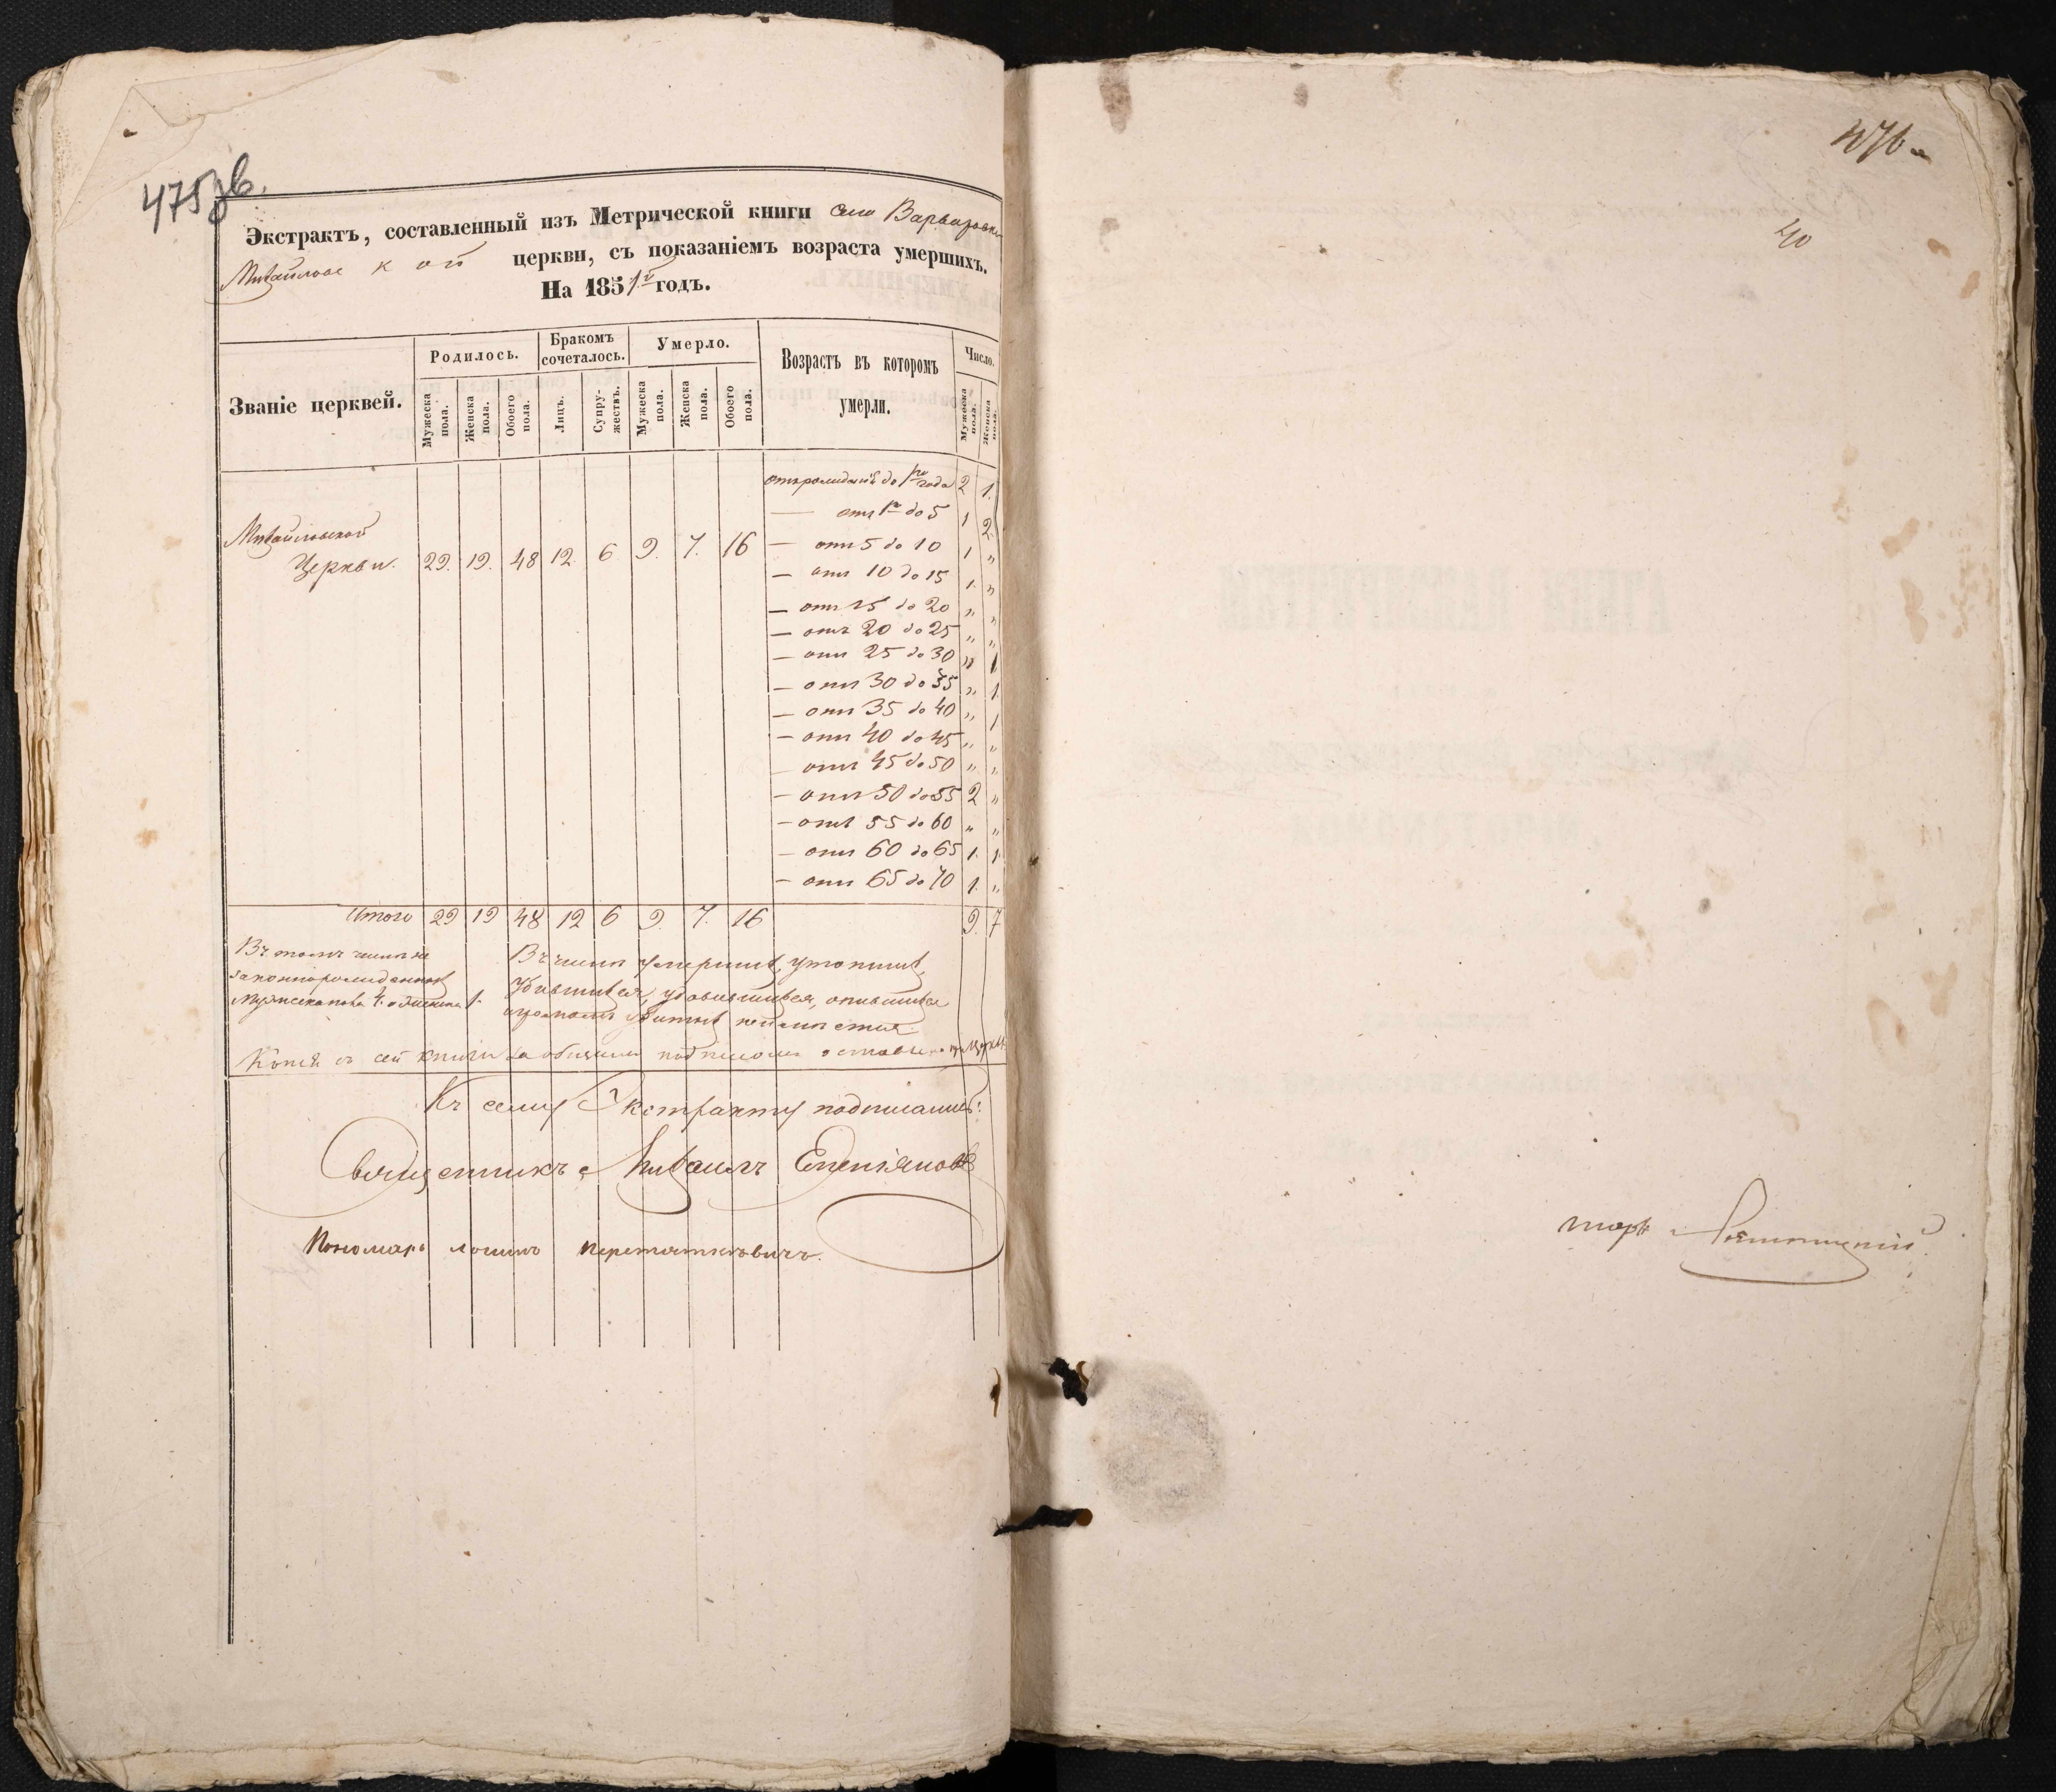 475 зв.
Экстрактъ, составленный изъ Метрической книги села Варваровки
Михайловской церкви, съ показаніемъ возраста умершихъ.
На 1851й годъ.
Званіе церквей.
Родилось.
Бракомъ сочеталось.
Умерло.
Возрастъ въ которомъ умерли.
Число.
Мужеска пола.
Женска пола.
Обоего пола.
Лицъ.
Супружествъ.
Мужеска пола.
Женска пола.
Обоего пола.
Мужеска пола.
Женска пола.
отъ рожденія до 1го года 2 1.
— отъ 1го до 5 1 2
Михайловской
Церкви. 29. 19. 48 12. 6. 9. 7. 16
— отъ 5 до 10 1 "
— отъ 10 до 15 1. "
— отъ 15 до 20 " "
— отъ 20 до 25 " "
— отъ 25 до 30 " 1
— отъ 30 до 35 " 1.
— отъ 35 до 40 " 1
— отъ 40 до 45 " "
отъ 45 до 50 " "
— отъ 50 до 55 2 "
— отъ 55 до 60 " "
— отъ 60 до 65 1. 1.
— отъ 65 до 70 1. "
Итого 29 19 48 12 6 9. 7. 16 9. 7
Въ томъ числѣ не
законнорожденныхъ
Мужеска пола 1. и Женска 1.
Въ числѣ умершихъ, утопшихъ,
убившихся, удавившихся, опившихся
и громомъ убитыхъ неимѣется.
Копія съ сей книги за общимъ подписомъ оставлена при Церкви.
Къ сему Экстракту подписались:
Священникъ Михаилъ
Пономарь
476
40